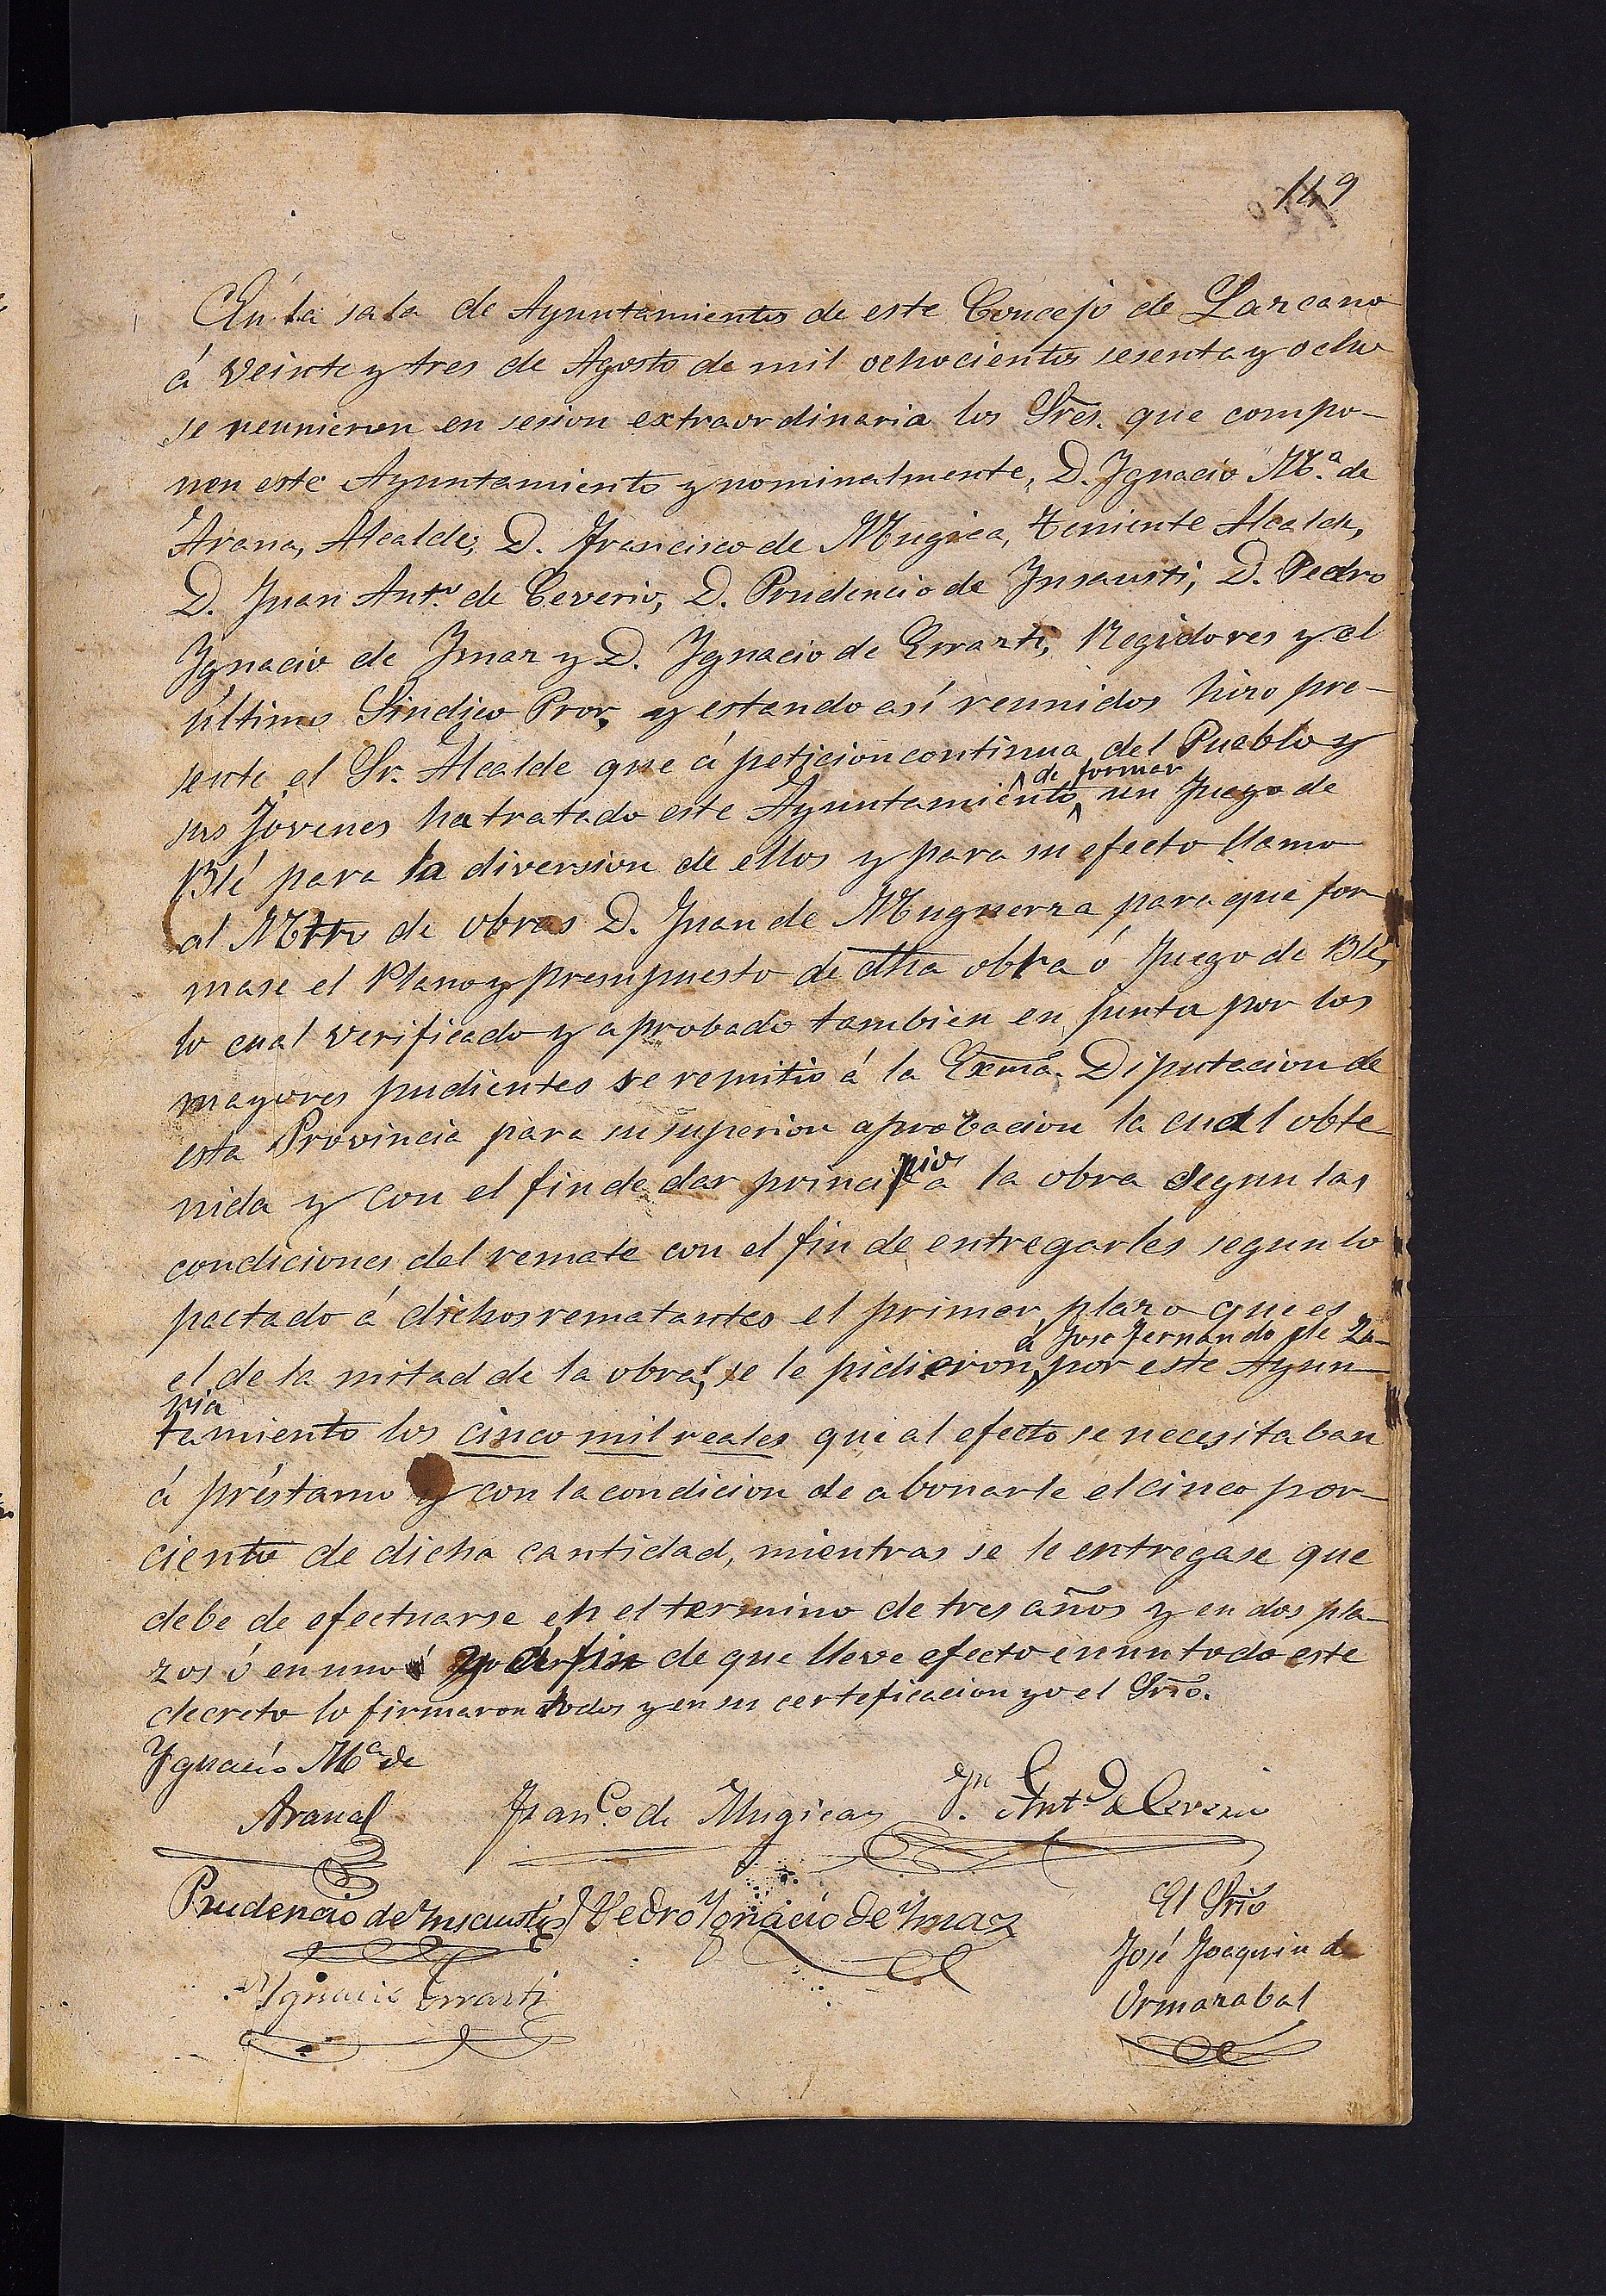 149
En la sala de Ayuntamientos de este Concejo de Lazcano
á veinte y tres de Agosto de mil ochocientos sesenta y ocho
se reunieron en sesion extraordinaria los Sres. que compo-
nen este Ayuntamiento y nominalmente, D. Ygnacio M.ª de
Arana, Alcalde, D. Francisco de Mugica, Teniente Alcalde,
D. Juan Ant.º de Ceverio, D. Prudencio de Ynsausti, D. Pedro
Ygnacio de Ymaz y D. Ygnacio de Errazti, Regidores y el
último Sindico Pror, y estando así reunidos hizo pre-
sente el Sr. Alcalde que á peticion continua del Pueblo y
sus Jóvenes ha tratado este Ayuntamiento de formar un Juego de
Blé para la diversion de ellos y para su efecto llamo
al Mtro de obras D. Juan de Muguerza para que for-
mase el Plano y presupuesto de dha obra ó Juego de Blé,
lo cual verificado y aprobado tambien en junta por los
mayores pudientes se remitió á la Exma. Diputacion de
esta Provincia para su superior aprobacion la cual obte-
nida y con el fin de dar principio á la obra segun las
condiciones del remate con el fin de entregarles segun lo
pactado á dichos rematantes el primer plazo que es
el de la mitad de la obra, se le pidieron á José Fernando de Za-
via por este Ayun-
tamiento los cinco mil reales que al efecto se necesitaban
á préstamo y con la condicion de abonarle el cinco por-
ciento de dicha cantidad, mientras se le entregase que
debe de efectuarse en el termino de tres años y en dos pla-
zos ó en uno á fin de que lleve efecto en un todo este
decreto lo firmaron todos y en su certeficacion yo el Srio.
Ygnacio Mª de
Arana
Franco. de Mugica
Jn. Antº de Ceverio
Prudencio de Insausti
Pedro Ygnacio de Ymaz
El Srio
José Joaquin de
Ormazabal
Ygnacio Errazti